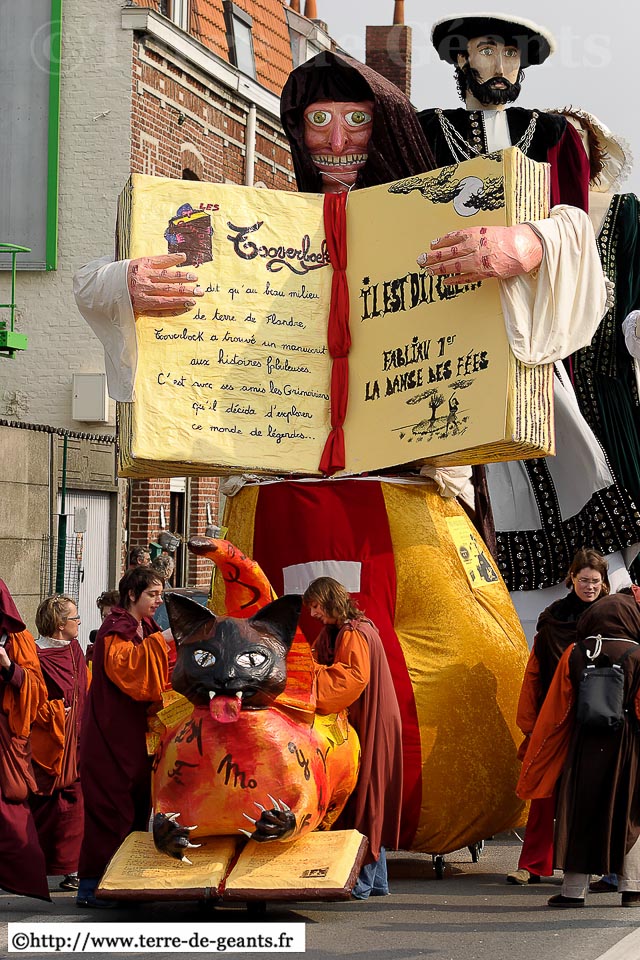 © Terre de Géants
LES
Tsoverboek
dit qu'au milieu
de terre de Flandre,
Tsoverbock a trouvé un manuscrit
aux histoires fabuleuses.
C'est avec ses amis les Grimoiriens
qu'il décida d'explorer
ce monde de légendes...
IL EST DIT QU'EN
FABLIAU 1er
LA DANSE DES FÉES
©http://www.terre-de-geants.fr/